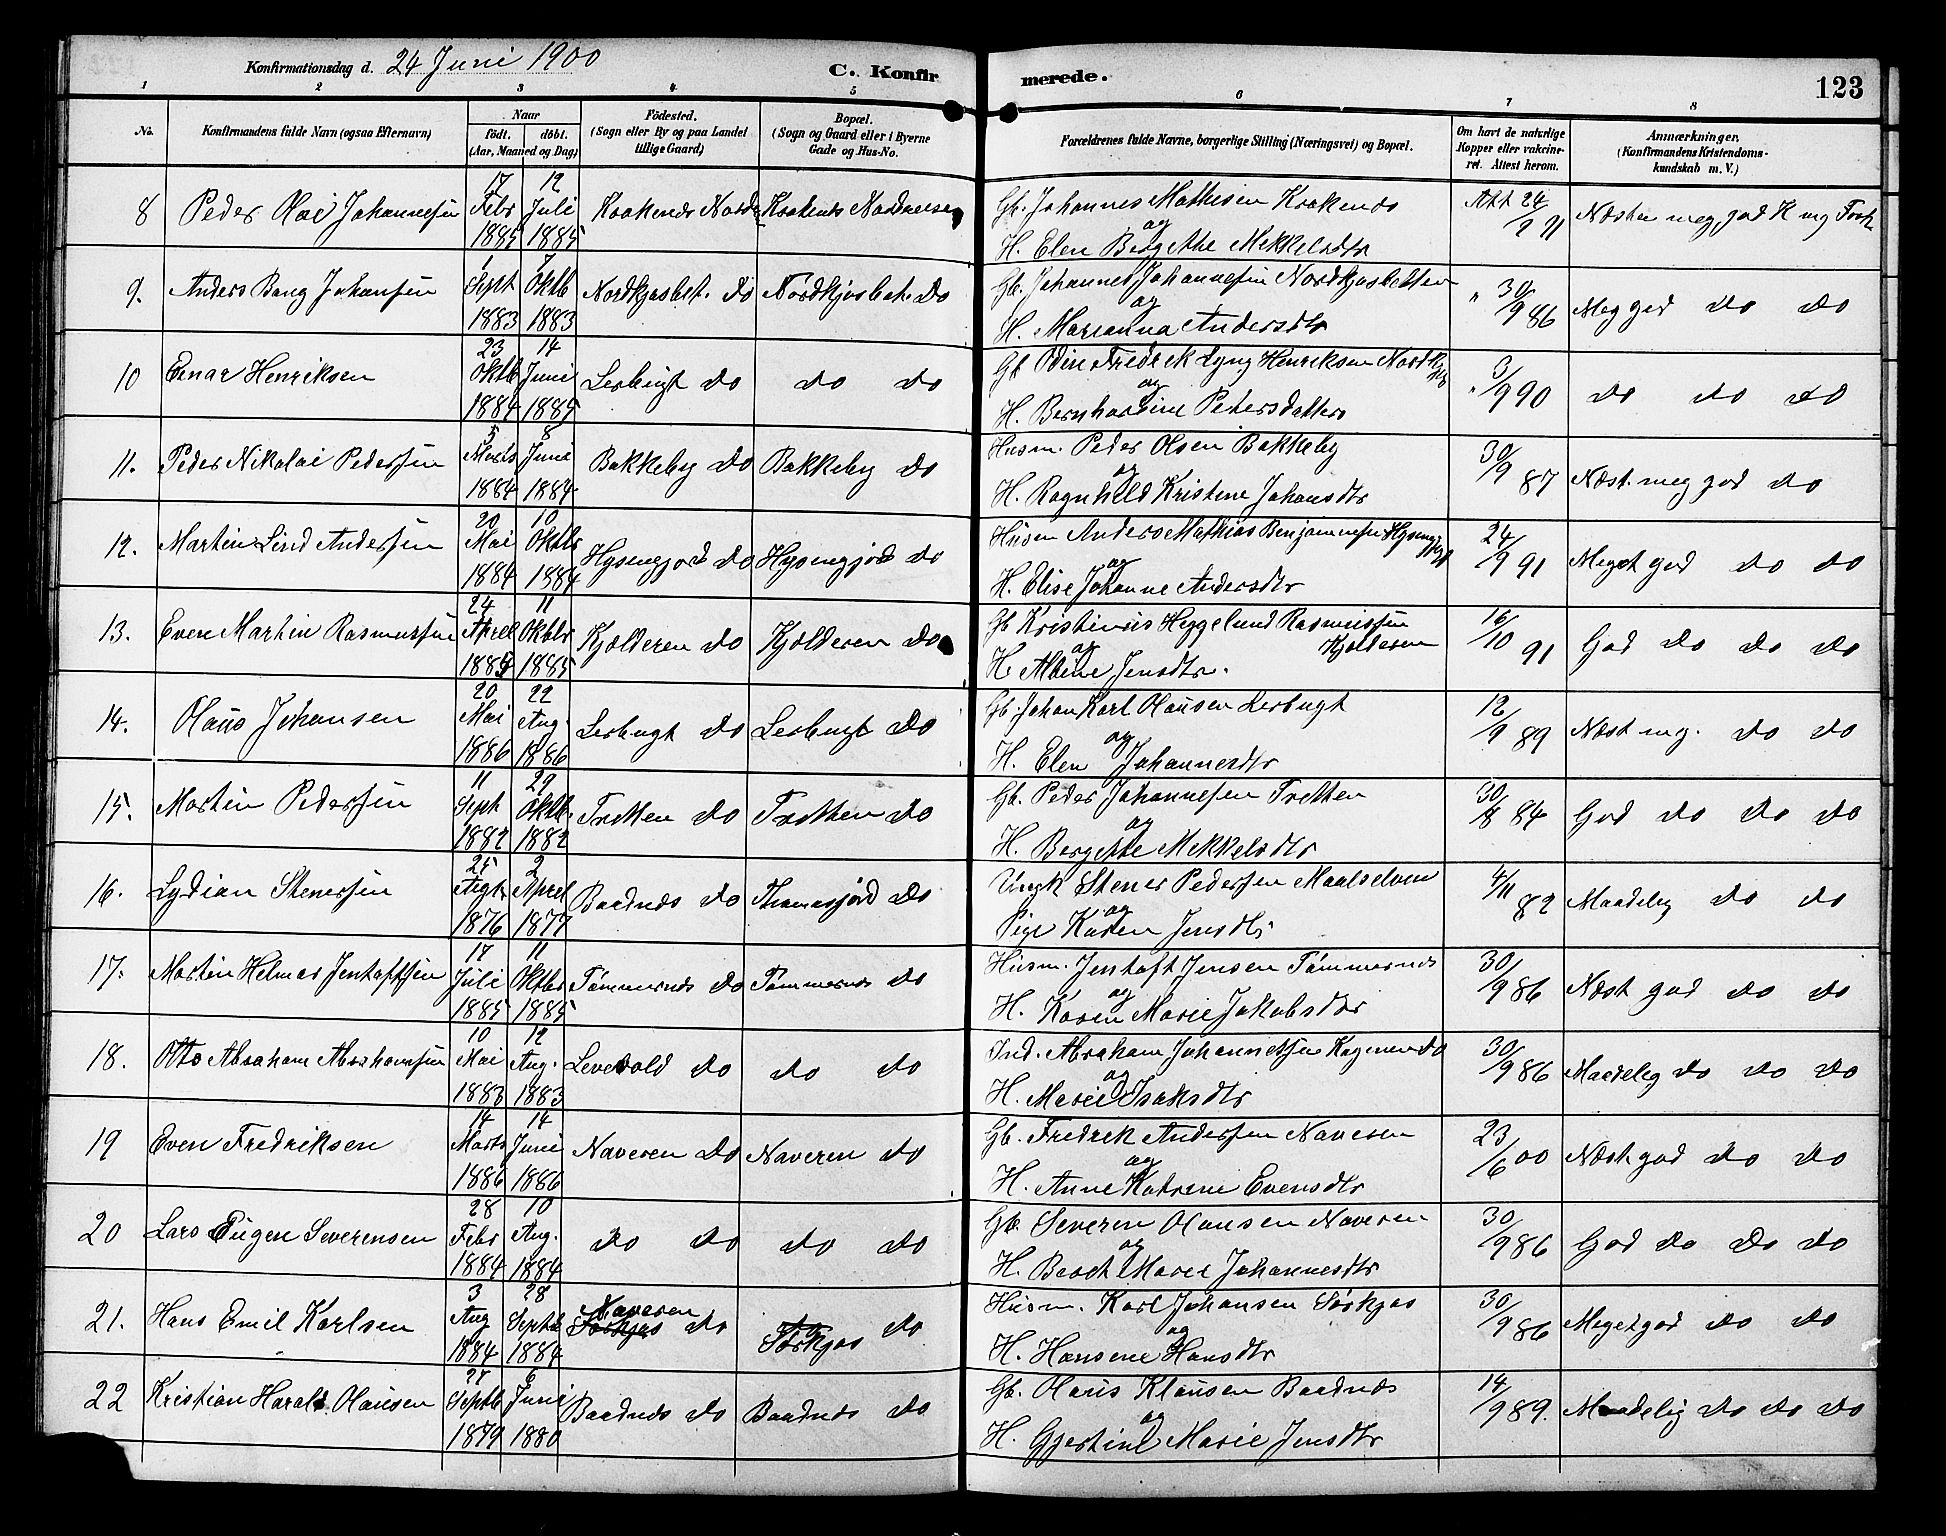 Konfirmationsdag d. 24 Juni 1900
C. Konfir merede. 123
1 2 3 4 5 6 7 8
No. Konfirmandens fulde Navn (ogsaa Efternavn) Naar født. døbt. (Aar, Maaned og Dag) Fødested. (Sogn eller By og paa Landet tillige Gaard) Bopæl. (Sogn og Gaard eller i Byerne Gade og Hus-No. Forældrenes fulde Navne, borgerlige Stilling (Næringsvei) og Bopæl. Om havt de naturlige Kopper eller vakcineret. Attest herom. Anmærkninger. (Konfirmandens Kristendomskundskab m. V.)
8 Peder Olai Johannesen 17 Febr 1885 12 Juli 1885 Kraknes Kraknes Gb. Johannes Mathisen Kraknes og H. Elen Bergethe Mekkelsdtr Att 24/9 91 Næsten meg. god
9. Anders Bang Johansen 1 Sept 1883 7 Oktb 1883 Nordkjosbot. do Nordkjosbot. do Gb. Johannes Johannesen Nordkjosbotten og H. Marianna Andersdtr " 30/9 86 Meg god do do
10 Einar Henriksen 23 Oktb 1884 14 Juni 1885 Lerbugt do do do Gb Odin Fredrik Lyng Henriksen Nordkjos og H. Bernhardine Petersdatter " 3/9 90 do do do
11. Peder Nikolai Pedersen 5 Marts 1884 8 Juni 1884 Bakkeby do Bakkeby do Husm. Peder Olsen Bakkeby og H. Ragnhild Kristine Johansdtr 30/9 87 Næst. meg god do
12. Martin Lind Andersen 20 Mai 1884 10 Oktbr 1884 Hysingjord do Hysingjord do Husm Anders Mathias Benjaminsen Hysingjord og H. Elise Johanne Andersdtr 24/9 91 Meget god do do
13. Even Martin Rasmussen 24 April 1885 11 Oktbr 1885 Kjelderen do Kjelderen do Gb Kristinius Heggelund Rasmussen Kjelderen og H. Albine Jensdtr. 16/10 91 God do do do
14. Olaus Johansen 20 Mai 1886 22 Aug. 1886 Lerbugt do Lerbugt do Gb. Johan Karl Olausen Lerbugt og H. Elen Johannesdtr 12/9 89 Næst meg. do do
15. Martin Pedersen 11 Sept 1882 29 Oktb. 1882 Tretten do Tretten do Gb. Peder Johannesen Tretten og H. Bergethe Mekkelsdtr 30/8 84 God do do do
16. Lydian Stenersen 25 Augt. 1876 2 April 1877 Baadnes do Thomasjord do Ungk Stener Pedersen Maalselven og Pige Karen Jensdtr 4/11 82 Maadelig do do
17. Martin Helmer Jentoftsen 17 Juli 1885 11 Oktbr 1885 Tømmernes do Tømmernes do Husm. Jentoft Jensen Tømmernes og H. Karen Marie Jakobsdtr 30/9 86 Næst god do do
18. Otto Abraham Abrahamsen 10 Mai 1883 12 Aug. 1883 Levevold do do do Ind. Abraham Johannesen og H. Marie Isaksdtr 30/9 86 Maadelig do do do
19 Even Fredriksen 14 Marts 1886 14 Juni 1886 Naveren do Naveren do Gb. Fredrik Andersen Naveren og H. Anne Katrine Evensdtr 23/6 00 Næst god do do
20 Lars Eugen Severinsen 28 Febr 1884 10 Aug. 1884 do do do do Gb. Severin Olausen Naveren og H. Marie Johannesdtr 30/9 86 God do do do
21. Hans Emil Karlsen 3 Aug 1884 28 Septb 1884 Naveren Sørkjos do do Sørkjos do Husm. Karl Johansen Sørkjos og H. Hansine Hansdtr 30/9 86 Meget god do do
22 Kristian Harald Olausen 28 Septb 1879 6 Juni 1880 Baadnes do Baadnes do Gb. Olaus Klausen Baadnes og H. Gjertine Marie Jensdtr 14/9 89. Maadelig do do do